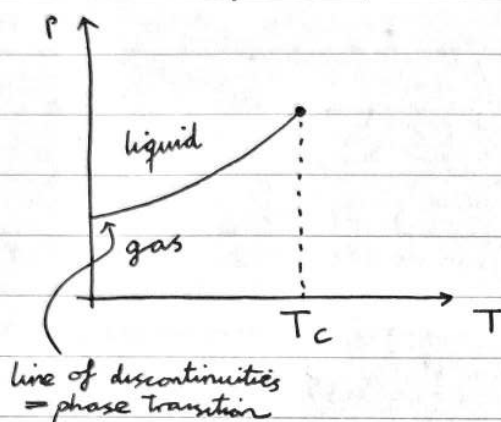 P
liquid
gas
T_c
T
line of discontinuities
= phase transition